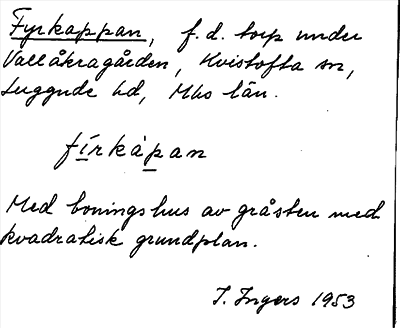 Fyrkappan, f.d. torp under
Vallåkragården, Kvistofta sn,
Luggude hd, Mhs län.
fírkàpan
Med boningshus av gråsten med
kvadratisk grundplan.
I. Ingers 1953